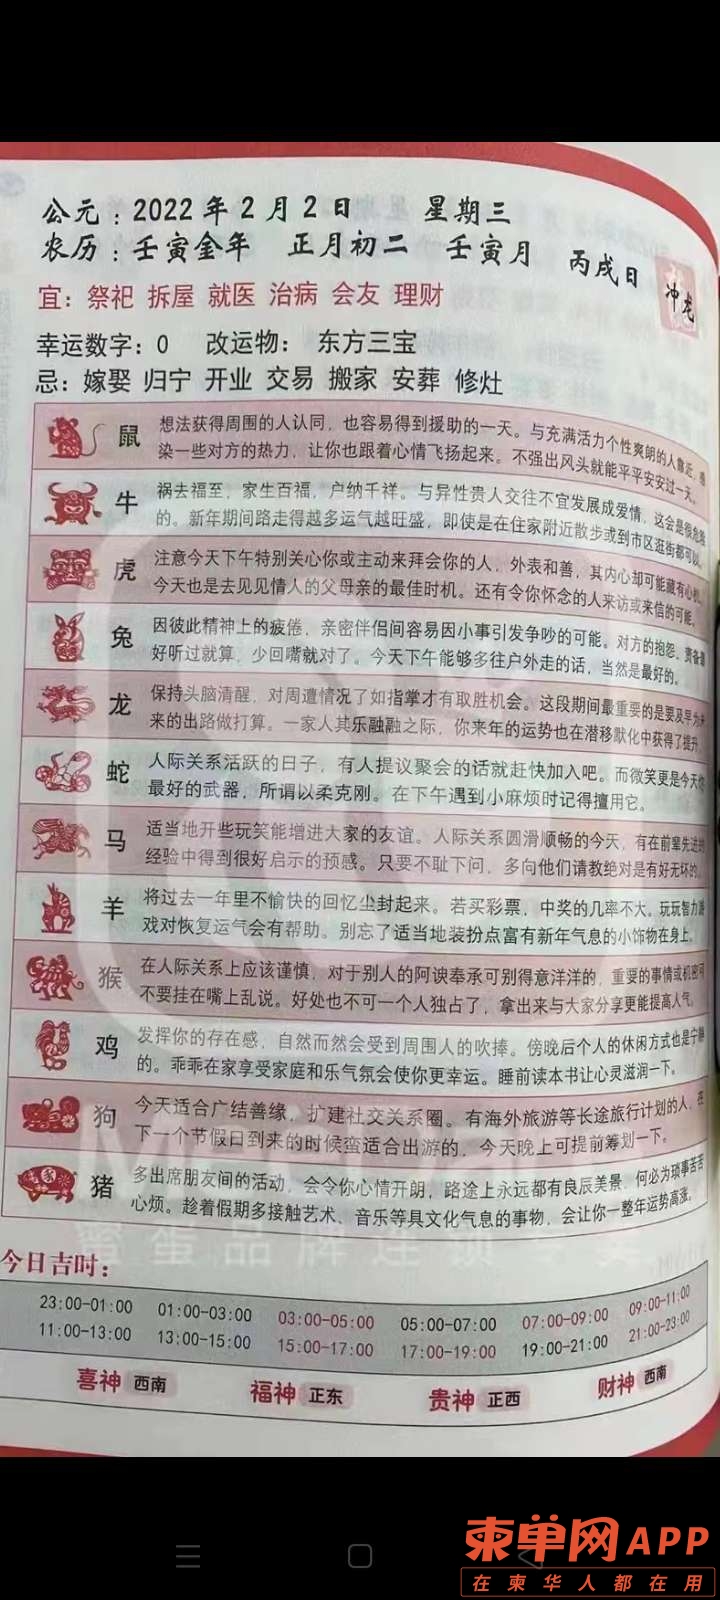 公元：2022年2月2日 星期三
农历：壬寅金年 正月初二 壬寅月 丙戌日
冲龙
宜：祭祀 拆屋 就医 治病 会友 理财
幸运数字：0 改运物： 东方三宝
忌：嫁娶 归宁 开业 交易 搬家 安葬 修灶
鼠
想法获得周围的人认同，也容易得到援助的一天。与充满活力个性爽朗的人靠近，感
染一些对方的热力，让你也跟着心情飞扬起来。不强出风头就能平平安安过一天。
牛
祸去福至，家生百福，户纳千祥。与异性贵人交往不宜发展成爱情，这会是很危险
的。新年期间路走得越多运气越旺盛，即使是在住家附近散步或到市区逛街都可以。
虎
注意今天下午特别关心你或主动来拜会你的人，外表和善，其内心却可能藏有心机。
今天也是去见见情人的父母亲的最佳时机。还有令你怀念的人来访或来信的可能。
兔
因彼此精神上的疲倦，亲密伴侣间容易因小事引发争吵的可能。对方的抱怨、责备最
好听过就算，少回嘴就对了。今天下午能够多往户外走的话，当然是最好的。
龙
保持头脑清醒，对周遭情况了如指掌才有取胜机会。这段期间最重要的是要及早为未
来的出路做打算。一家人其乐融融之际，你来年的运势也在潜移默化中获得了提升。
蛇
人际关系活跃的日子，有人提议聚会的话就赶快加入吧。而微笑更是今天你
最好的武器，所谓以柔克刚。在下午遇到小麻烦时记得擅用它。
马
适当地开些玩笑能增进大家的友谊。人际关系圆滑顺畅的今天，有在前辈先进的
经验中得到很好启示的预感。只要不耻下问，多向他们请教绝对是有好无坏的。
羊
将过去一年里不愉快的回忆尘封起来。若买彩票，中奖的几率不大。玩玩智力游
戏对恢复运气会有帮助。别忘了适当地装扮点富有新年气息的小饰物在身上。
猴
在人际关系上应该谨慎，对于别人的阿谀奉承可别得意洋洋的，重要的事情或机密可
不要挂在嘴上乱说。好处也不可一个人独占了，拿出来与大家分享更能提高人气。
鸡
发挥你的存在感，自然而然会受到周围人的吹捧。傍晚后个人的休闲方式也是宁静
的。乖乖在家享受家庭和乐气氛会使你更幸运。睡前读本书让心灵滋润一下。
狗
今天适合广结善缘，扩建社交关系圈。有海外旅游等长途旅行计划的人，在
下一个节假日到来的时候蛮适合出游的，今天晚上可提前筹划一下。
猪
多出席朋友间的活动，会令你心情开朗，路途上永远都有良辰美景，何必为琐事苦苦
心烦。趁着假期多接触艺术、音乐等具文化气息的事物，会让你一整年运势高涨。
今日吉时：
23:00-01:00 01:00-03:00 03:00-05:00 05:00-07:00 07:00-09:00 09:00-11:00
11:00-13:00 13:00-15:00 15:00-17:00 17:00-19:00 19:00-21:00 21:00-23:00
喜神 西南 福神 正东 贵神 正西 财神 西南
柬单网APP
在柬华人都在用